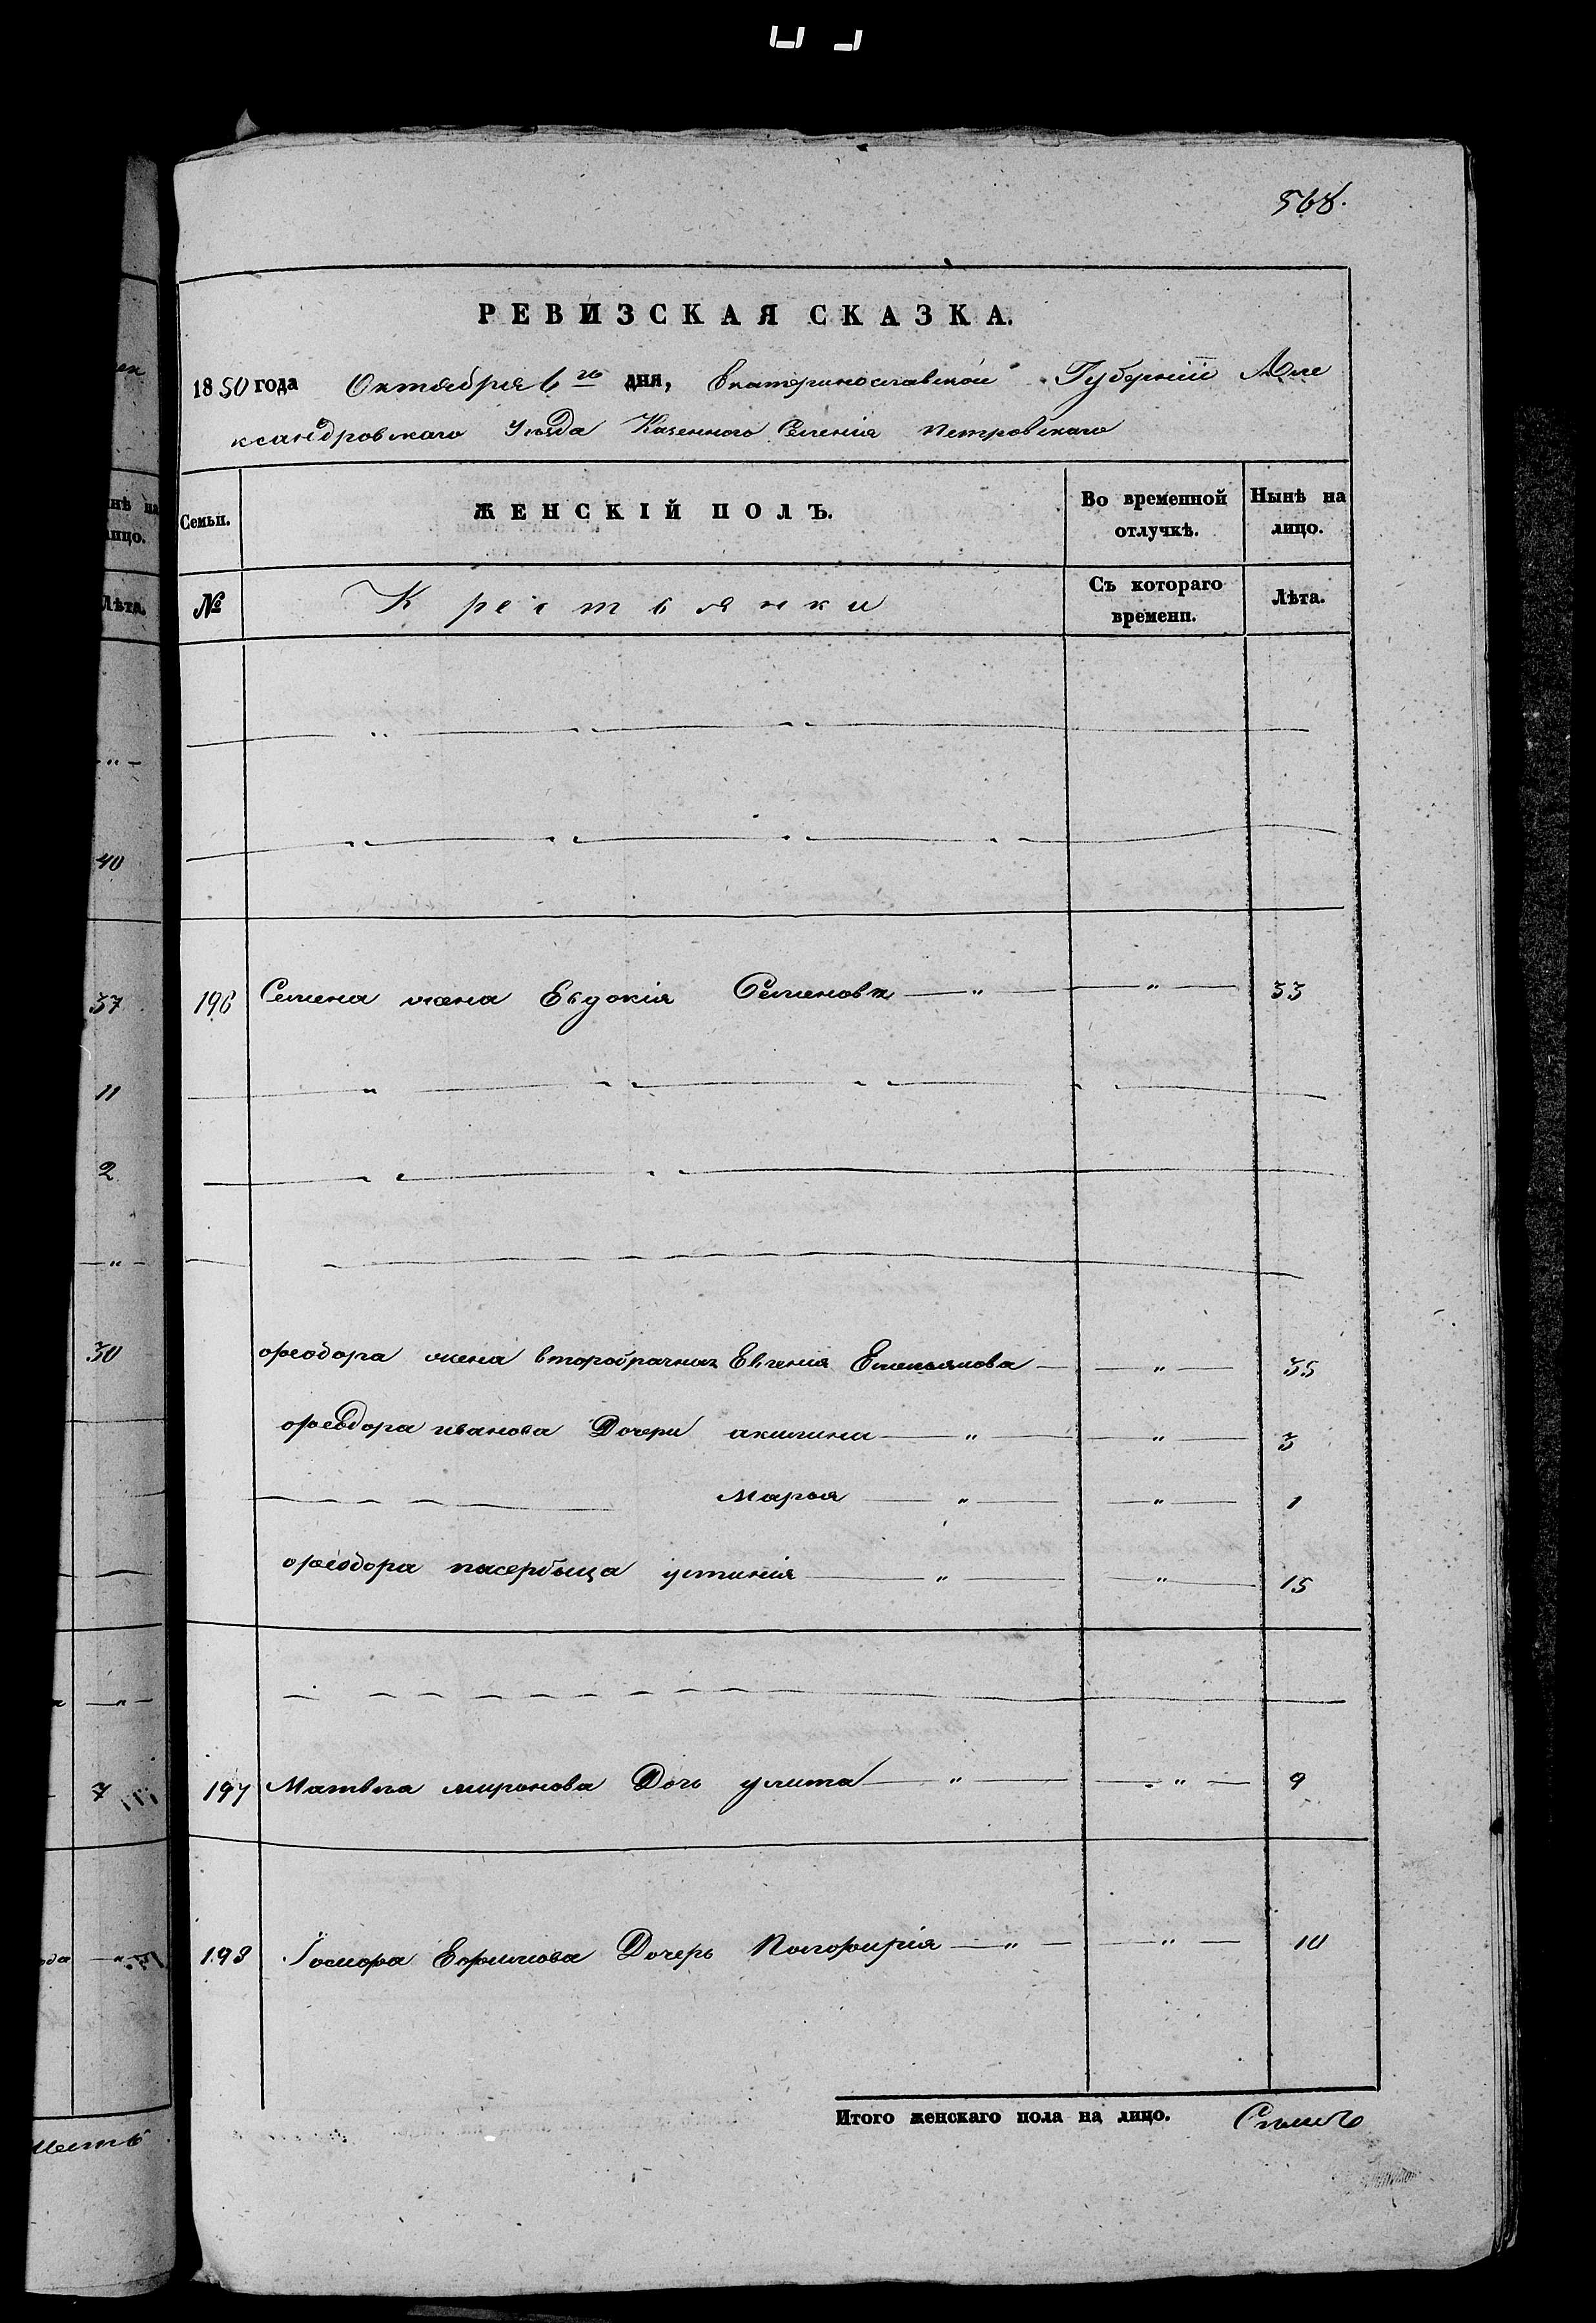 568.
РЕВИЗСКАЯ СКАЗКА.
1850 года Октября 6го дня, Екатеринославской Губернии Але
ксандровскаго Уезда Казенного Селения Петровскаго
Семьи. ЖЕНСКІЙ ПОЛЪ. Во временной отлучкѣ. Нынѣ на лицо.
№ Крестьянки Съ котораго времени. Лѣта.
196 Семена жена Евдокія Семенова — " — — " — 33
Ѳеодора жена второбрачная Евгения Емельянова — — " — 35
Ѳеодора иванова Дочери акилини — " — — " — 3
Марья — " — — " — 1
Ѳеодора пасербица устинія — " — — " — 15
197 Матвѣя миронова Дочь улита — " — — " — 9
198 Ефимова Дочерь — " — — " — 10
Итого женскаго пола на лицо. Семь
нѣ на
ицо.
Лѣта.
— " —
40
37
11
2
— " —
30
— " —
7